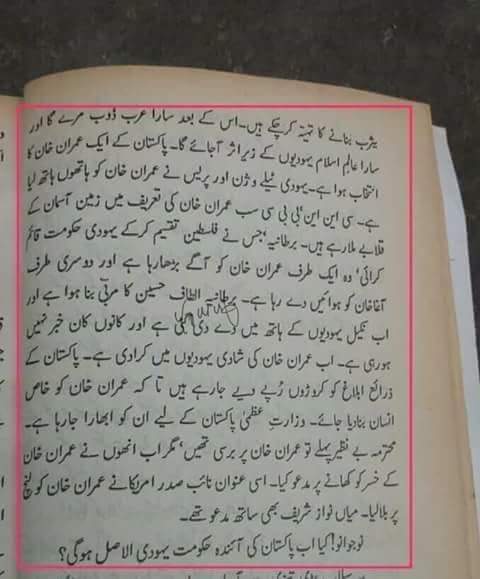 یثرب بنانے کا تہیّہ کرچکے ہیں۔ اس کے بعد سارا عرب ڈوب مرے گا اور
سارا عالمِ اسلام یہودیوں کے زیرِ اثر آجائے گا۔ پاکستان کے ایک عمران خان کا
انتخاب ہوا ہے۔ یہودی ٹیلے وژن اور پریس نے عمران خان کو ہاتھوں ہاتھ لیا
ہے۔ سی این این‘ بی بی سی سب عمران خان کی تعریف میں زمین آسمان کے
قلابے ملا رہے ہیں۔ برطانیہ‘ جس نے فلسطین تقسیم کرکے یہودی حکومت قائم
کرائی‘ وہ ایک طرف عمران خان کو آگے بڑھا رہا ہے اور دوسری طرف
آغاخان کو ہوائیں دے رہا ہے۔ برطانیہ الطاف حسین کا مربّی بنا ہوا ہے اور
اب نکیل یہودیوں کے ہاتھ میں دے دی گئی ہے اور کانوں کان خبر نہیں
ہورہی ہے۔ اب عمران خان کی شادی یہودیوں میں کرادی ہے۔ پاکستان کے
ذرائع ابلاغ کو کروڑوں رُپے دیے جارہے ہیں تا کہ عمران خان کو خاص
انسان بنادیا جائے۔ وزارتِ عظمیٰ پاکستان کے لیے ان کو ابھارا جارہا ہے۔
محترمہ بے نظیر پہلے تو عمران خان پر برسی تھیں‘ مگر اب انھوں نے عمران خان
کے خسر کو کھانے پر مدعو کیا۔ اسی عنوان نائب صدر امریکا نے عمران خان کو لنچ
پر بلالیا۔ میاں نواز شریف بھی ساتھ مدعو تھے۔
نوجوانو! کیا اب پاکستان کی آئندہ حکومت یہودی الاصل ہوگی؟